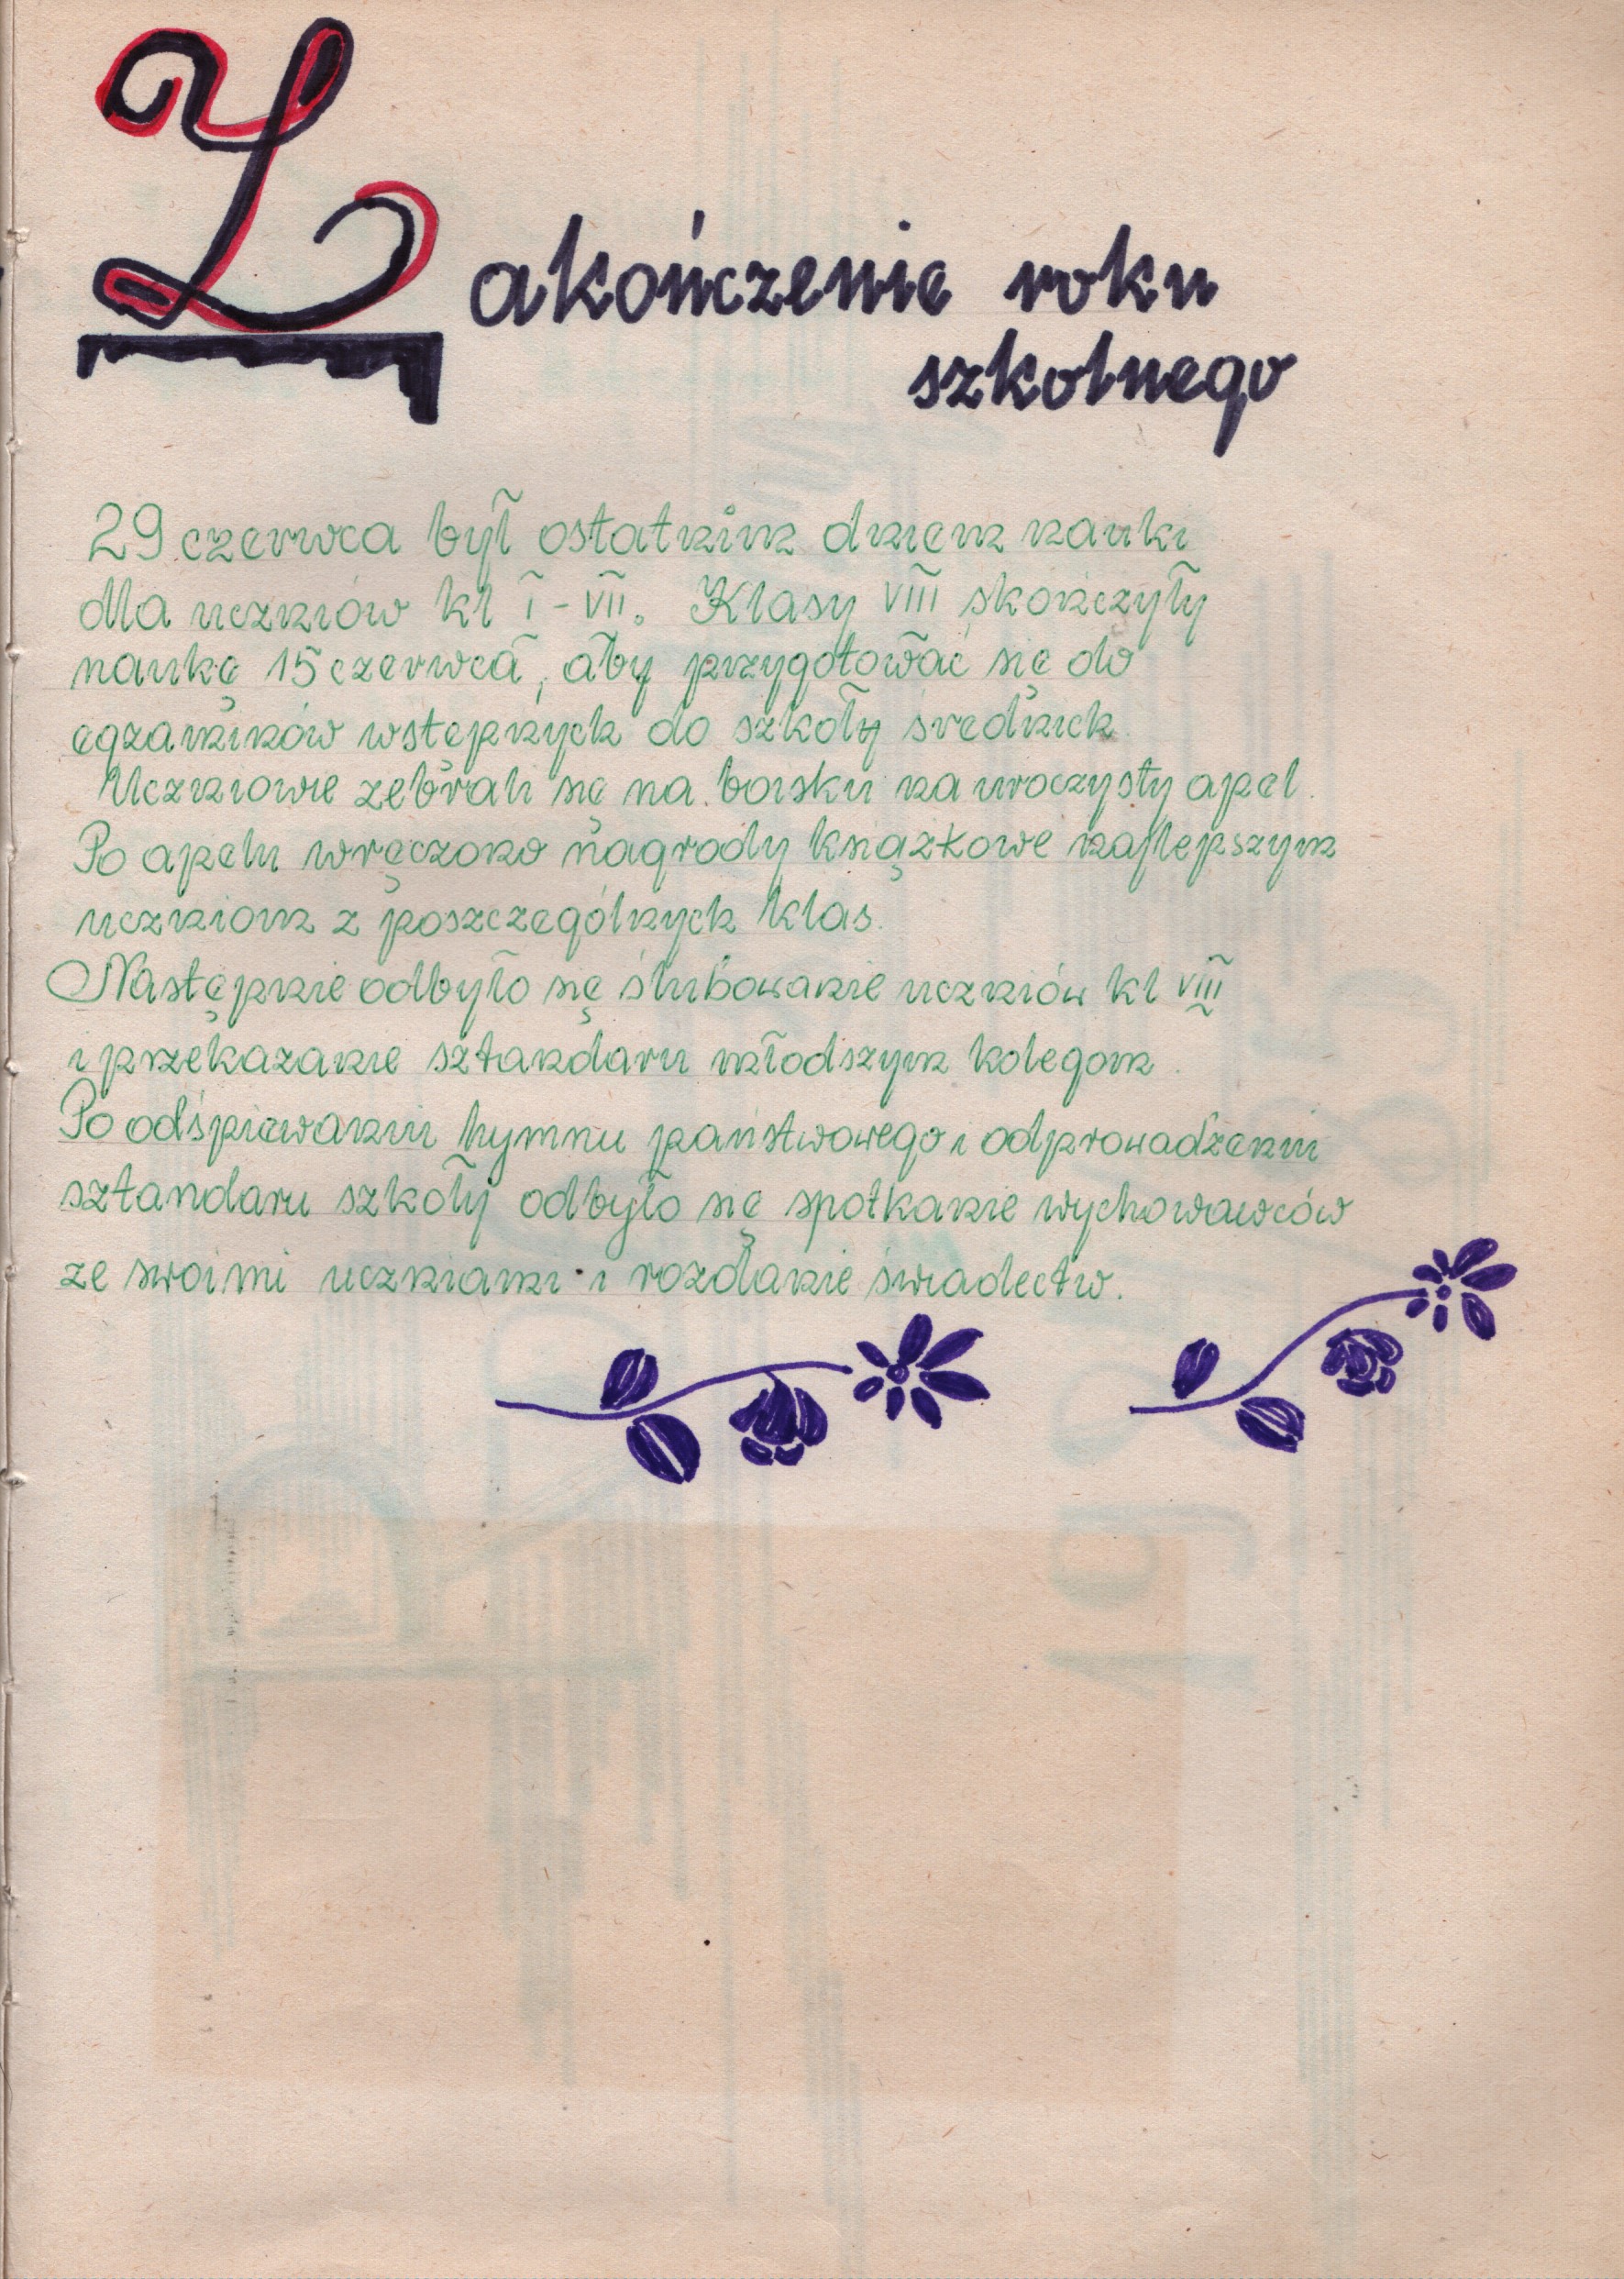 Zakończenie roku
szkolnego
29 czerwca był ostatnim dniem nauki
dla uczniów kl I - VII. Klasy VIII skończyły
naukę 15 czerwca, aby przygotować się do
egzaminów wstępnych do szkoły srednich
Uczniowie zebrali się na boisku na uroczysty apel.
Po apelu wręczono nagrody książkowe najlepszym
uczniom z poszczególnych klas.
Następnie odbyło się ślubowanie uczniów kl VIII
i przekazanie sztandaru młodszym kolegom.
Po odśpiewaniu hymnu państwowego i odprowadzeniu
sztandaru szkoły odbyło się spotkanie wychowawców
ze swoimi uczniami i rozdanie świadectw.